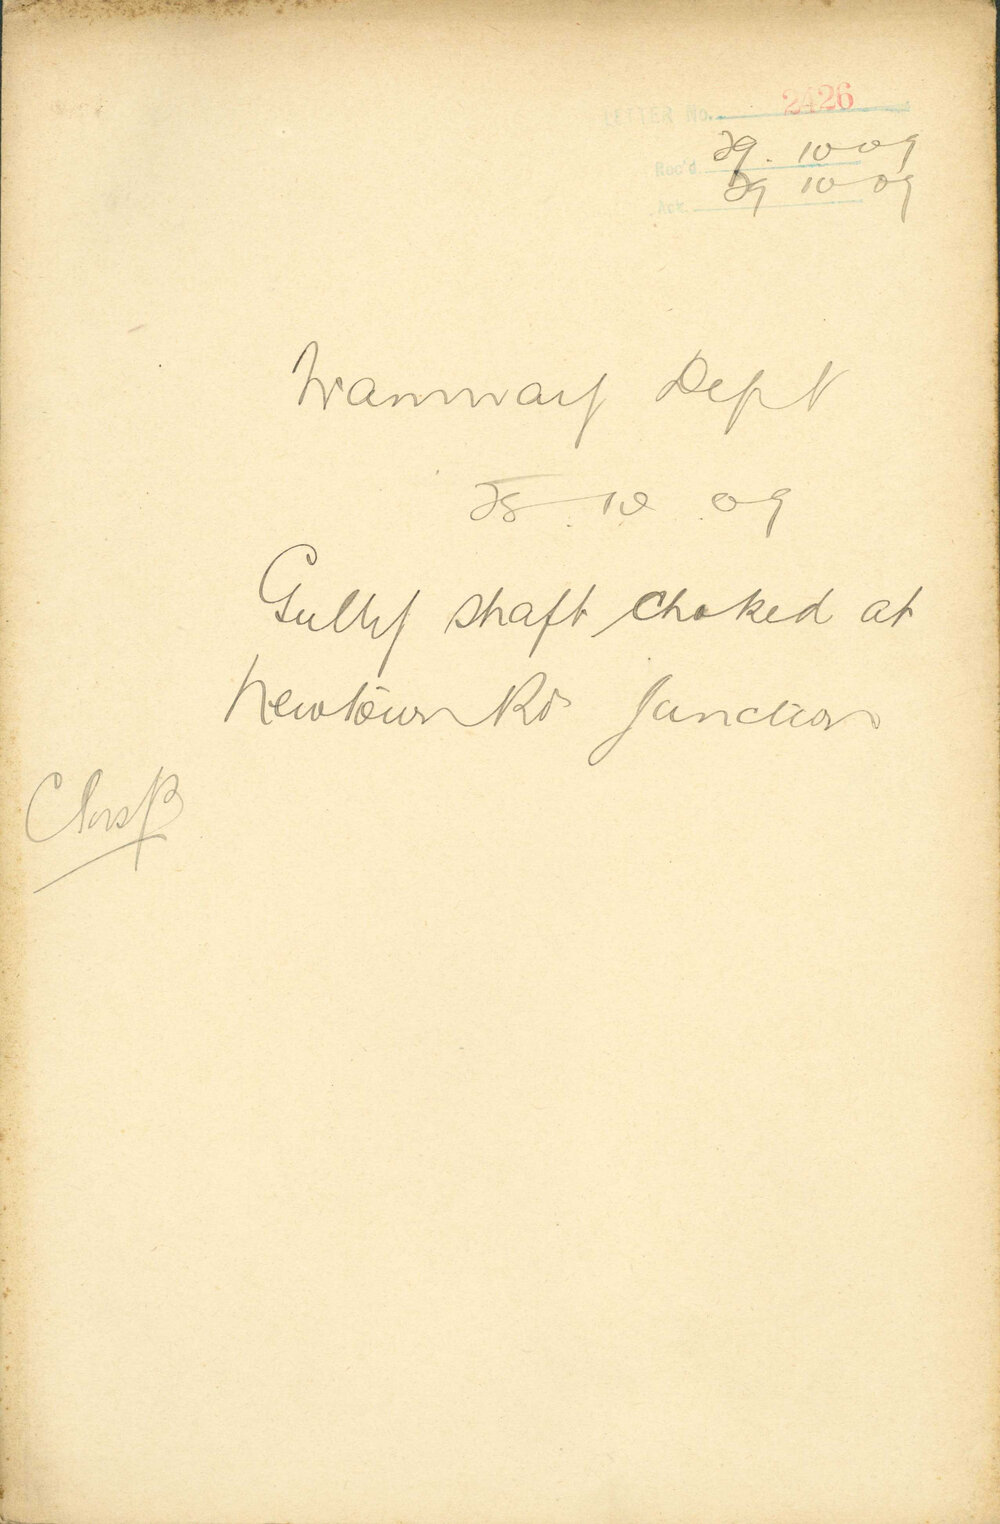 LETTER No. 2426
Rec'd 29. 10 09
Ack. 29 10 09
Tramway Dept
28 10 09
Gully shaft choked at
Newtown Rd Junction